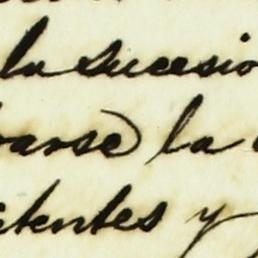 la sucesio
arse la
tentes y